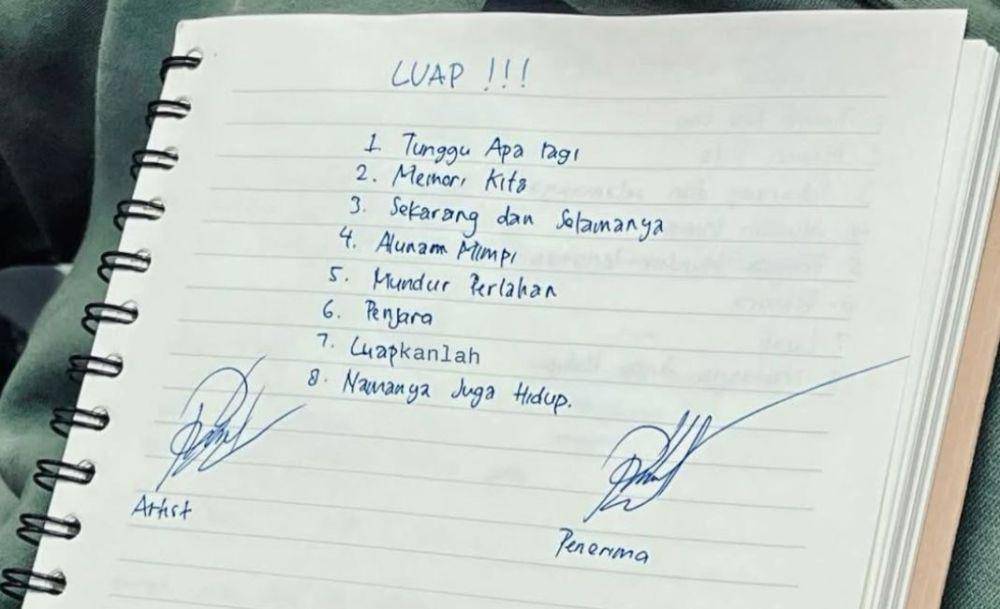 LUAP !!!
1. Tunggu Apa lagi
2. Memori Kita
3. Sekarang dan Selamanya
4. Alunam Mimpi
5. Mundur Perlahan
6. Penjara
7. Luapkanlah
8. Namanya Juga Hidup.
Artist
Penerima